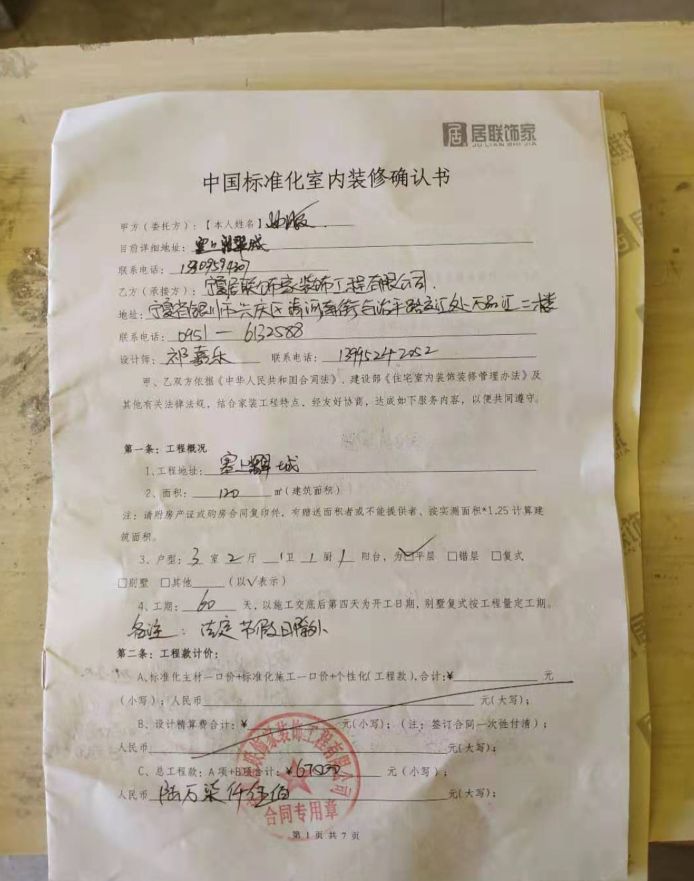 居联饰家
JU LIAN SHI JIA
中国标准化室内装修确认书
甲方（委托方）：【本人姓名】
目前详细地址：塞上
联系电话：
乙方（承接方）：宁夏居联饰家装饰工程有限公司.
地址：宁夏省银川市兴庆区清河南街与治平路交汇处 二楼
联系电话：0951—6132588
设计师：祁嘉乐 联系电话：13995242052
甲、乙双方依据《中华人民共和国合同法》、建设部《住宅室内装饰装修管理办法》及
其他有关法律法规，结合家装工程特点，经友好协商，达成如下服务内容，以便共同遵守。
第一条：工程概况
1、工程地址：塞上 城
2、面积：120 ㎡（建筑面积）
注：请附房产证或购房合同复印件，有赠送面积者或不能提供者、按实测面积*1.25计算建
筑面积。
3、户型：3 室 2 厅 1 卫 1 厨 1 阳台，为☑平层 □错层 □复式
□别墅 □其他 （以√表示）
4、工期：60 天，以施工交底后第四天为开工日期，别墅复式按工程量定工期。
备注：法定节假日除外
第二条：工程款计价：
A、标准化主材一口价+标准化施工一口价+个性化（工程款），合计：¥ 元
（小写）；人民币 元（大写）；
B、设计精算费合计：¥ 元（小写）；（注：签订合同一次性付清）；
人民币 元（大写）；
C、总工程款：A项+B项合计：¥ 元（小写）；
人民币 陆万柒仟伍佰 元（大写）；
合同专用章
第 1 页 共 7 页